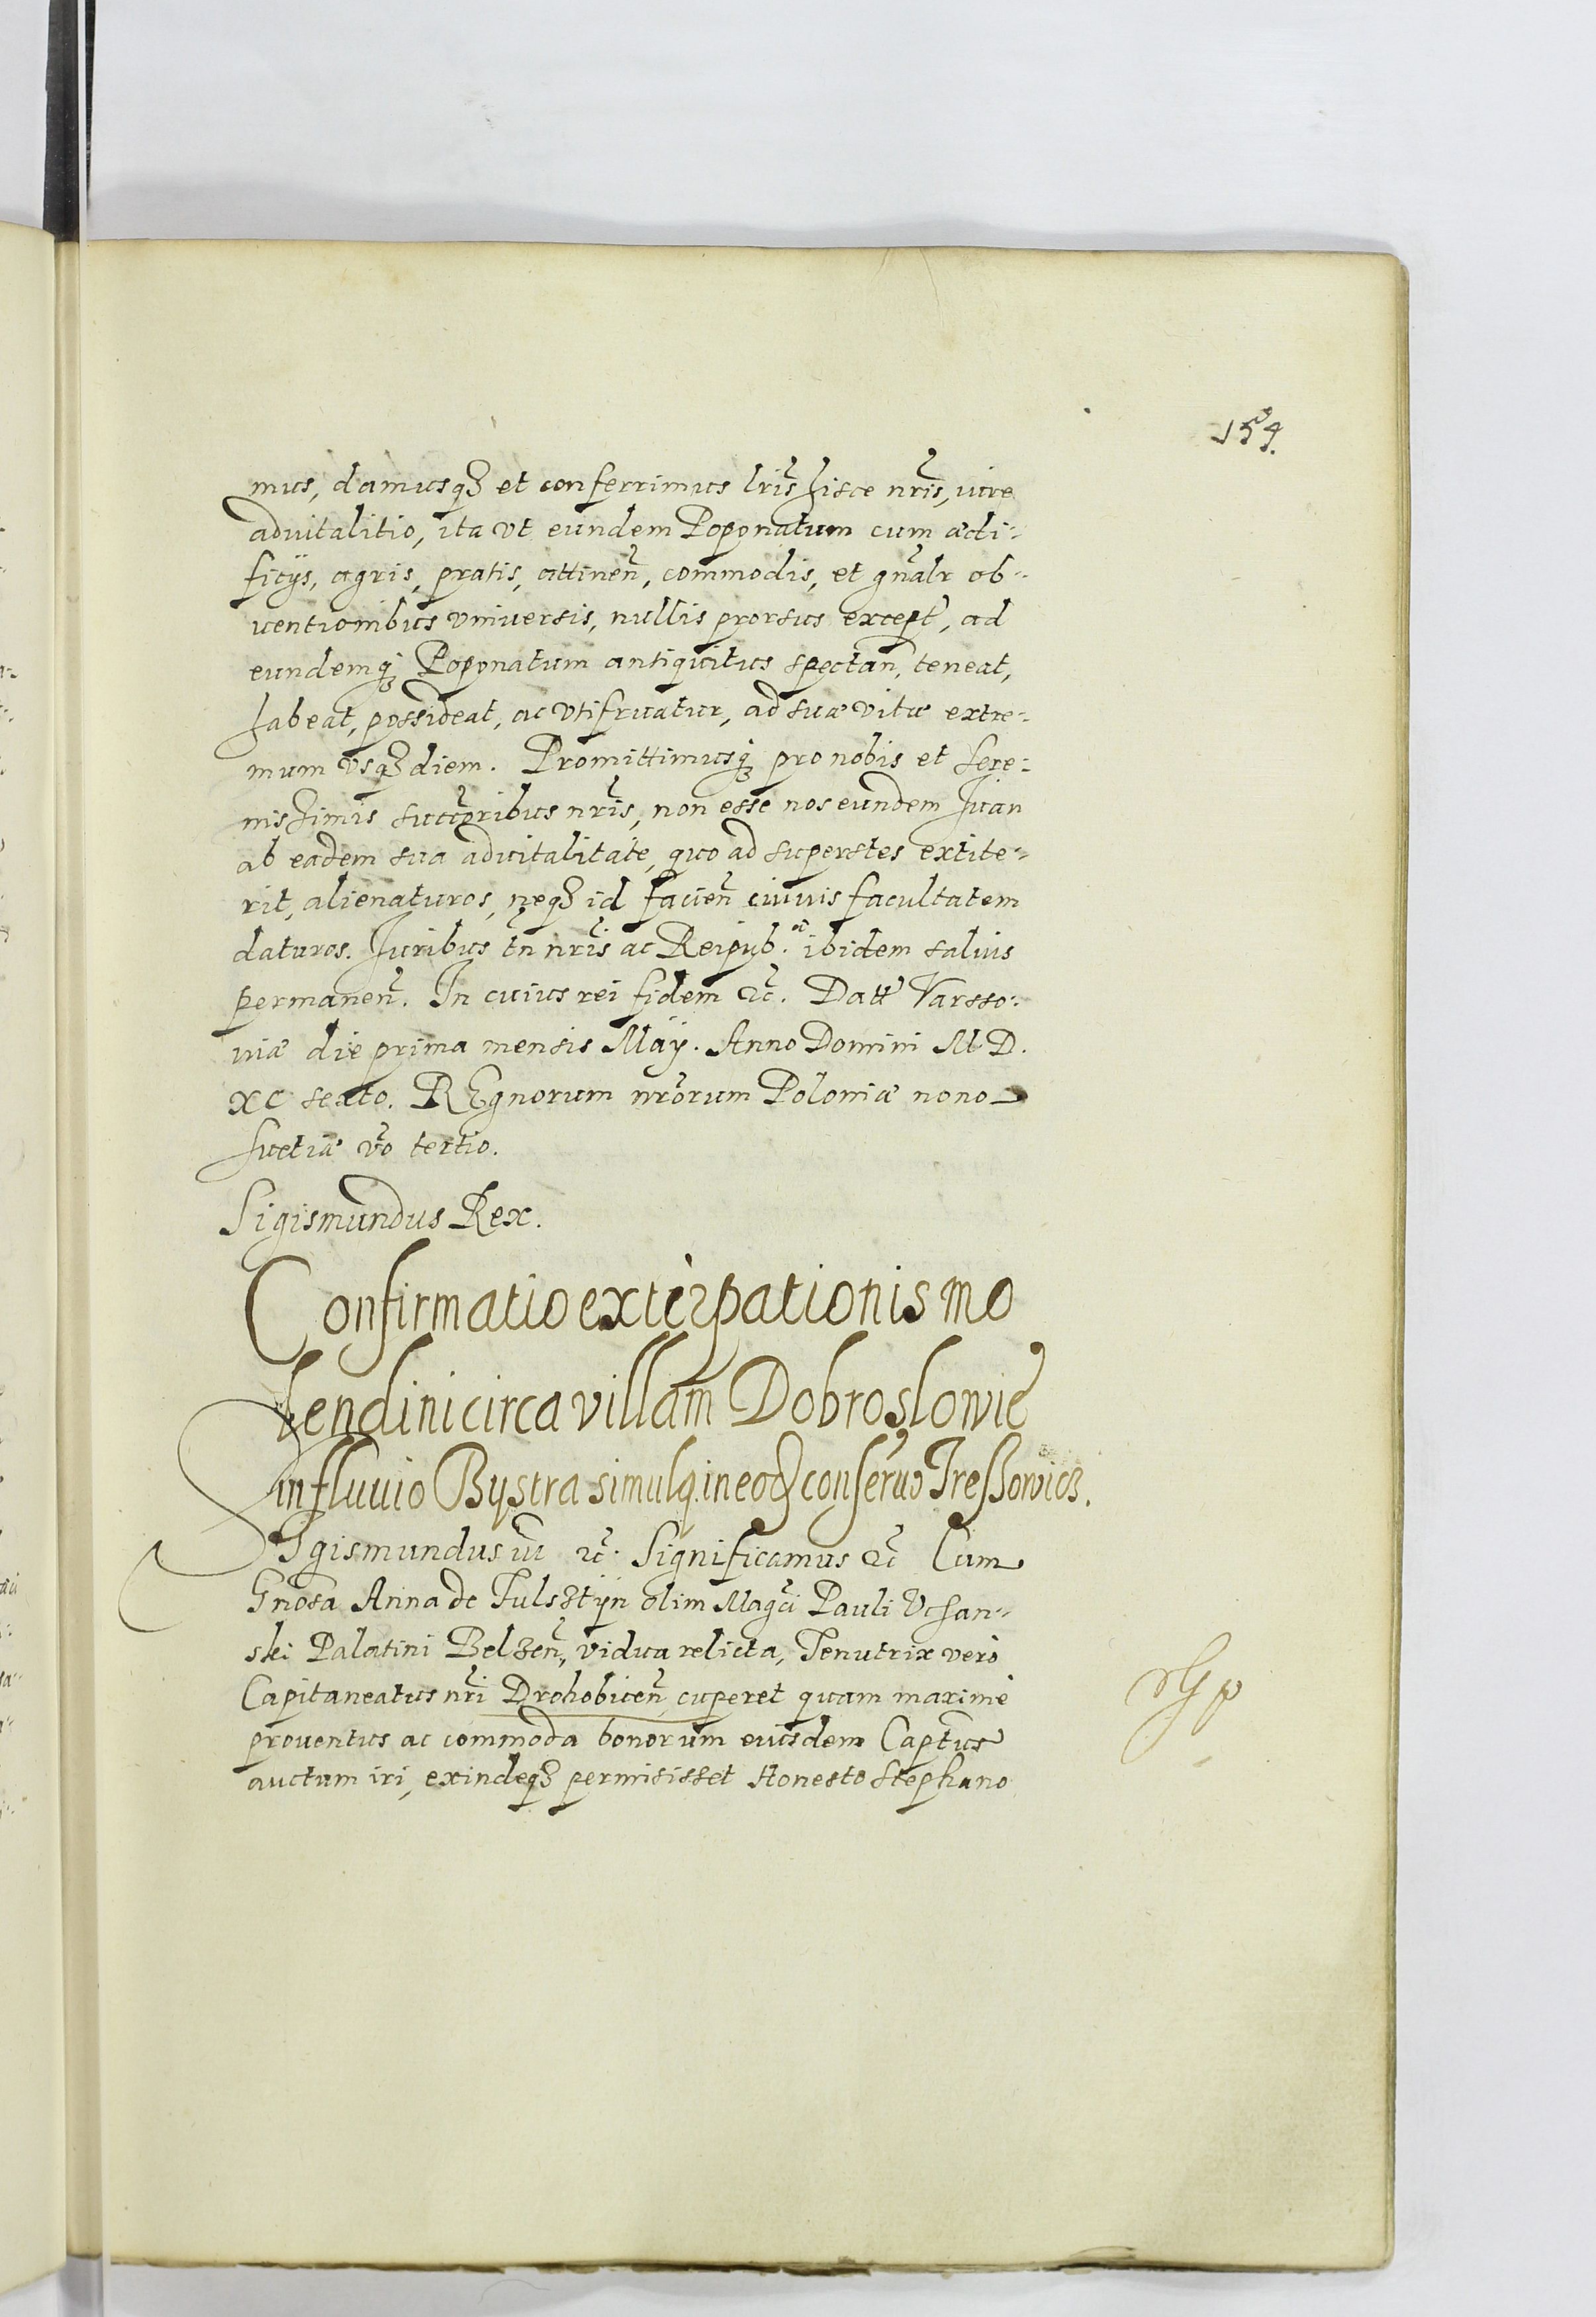 154.
mus, damusqȝ et conferrimus lr̃is hisce nr̃is, iure
aduitalitio, ita vt eundem Poponatum cum ædi-
ficijs, agris, pratis, attineñ, commodis, et gñalr ob-
uentionibus vniuersis, nullis prorsus except, ad
eundemqȝ Poponatum antiquitus spectañ, teneat,
habeat, possideat, ac vtifruatur, ad suæ vitæ extre-
mum vsqȝ diem. Promittimusqȝ pro nobis et Sere-
nissimis succr̃oribus nr̃is, non esse nos eundem Iuan
ab eadem sua aduitalitate, quo ad superstes extite-
rit, alienaturos, neqȝ id facieñ cuiuis facultatem
daturos. Iuribus tñ nr̃is ac Reipub. ibidem saluis
permaneñ. In cuius rei fidem etc̃. Datt Varsso-
uiæ die prima mensis Maÿ. Anno Domini M D.
XC sexto. REgnorum nr̃orum Poloniæ nono
Suetiæ ṽo tertio.
Sigismundus Rex.
Confirmatio exterpationis mo
lendini circa villam Dobroslowie
in fluuio Bystra simulq. in eodȝ conseruo Tressowicȝ.
Sigismundus iii etc̃. Significamus etc̃ Cum
Gnõsa Anna de Fulsztÿn olim Magc̃i Pauli Vchan-
ski Palatini Belzeñ, vidua relicta, Tenutrix verò
Capitaneatus nr̃i Drohobiceñ cuperet quam maximè
prouentus ac commoda bonorum eiusdem Captus
auctum iri, exindeqȝ permisisset Honesto Stephano